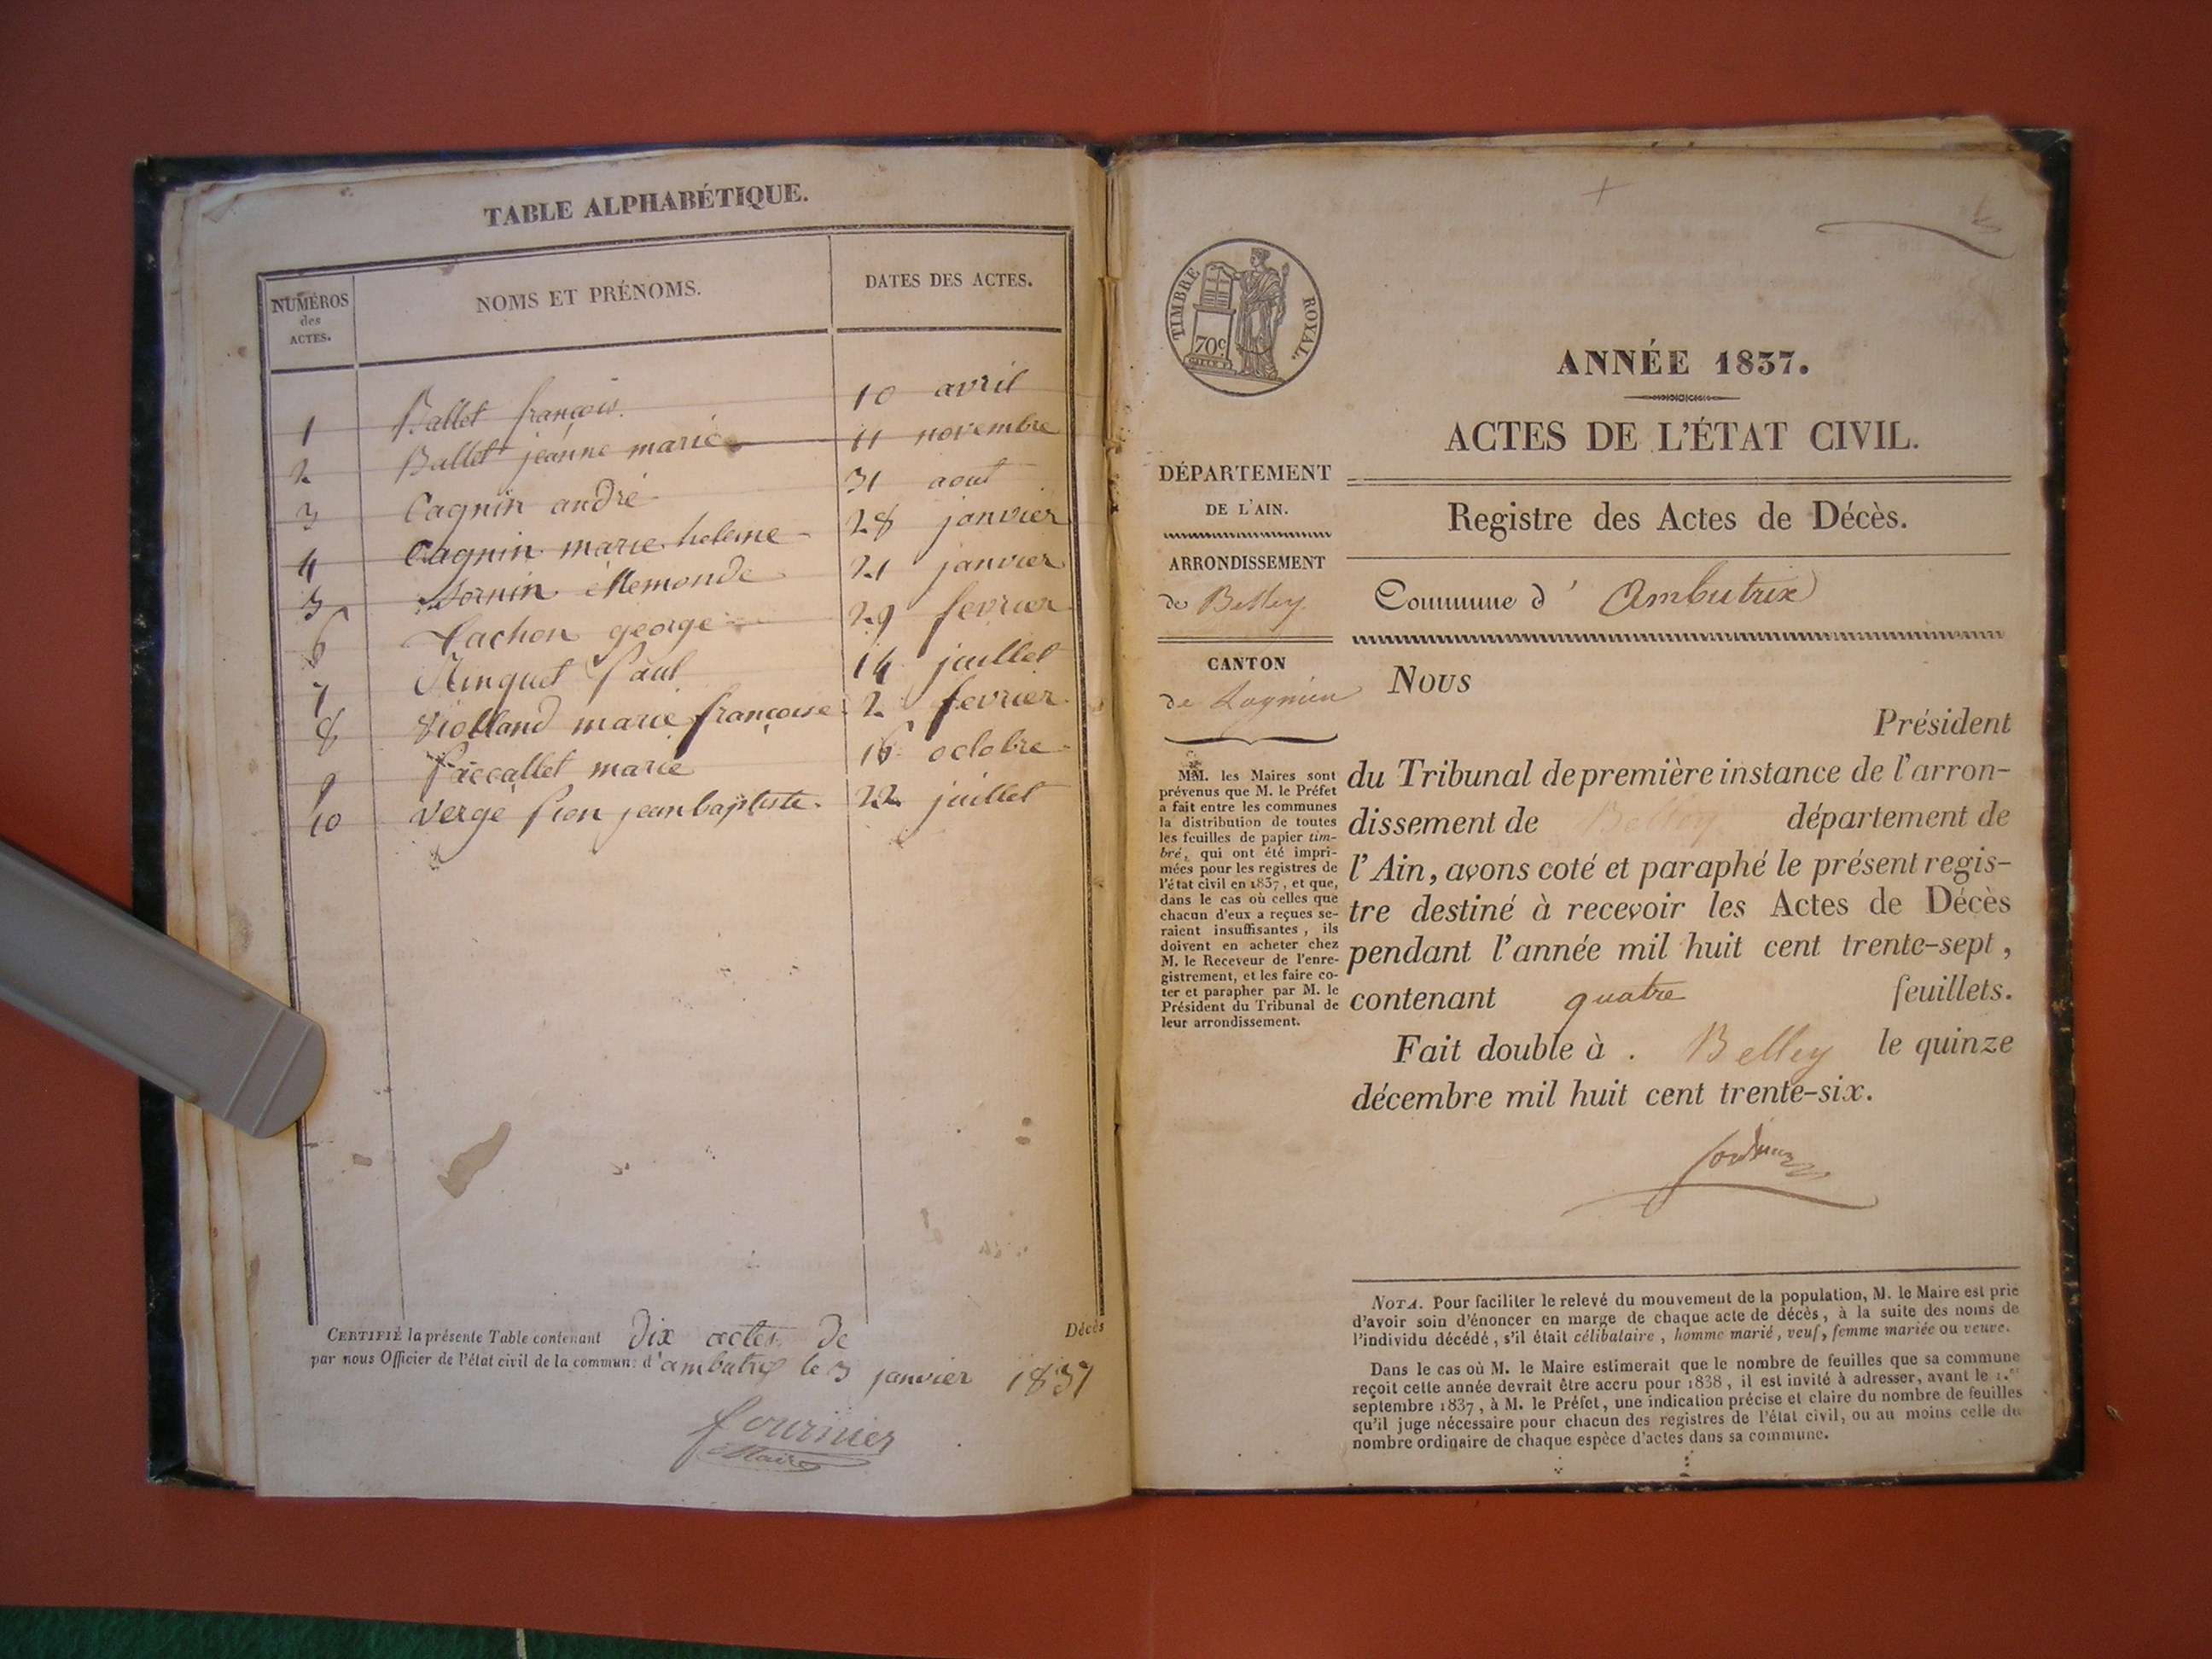 TABLE ALPHABÉTIQUE.
NUMÉROS des ACTES. NOMS ET PRÉNOMS. DATES DES ACTES.
1 Ballet françois. 10 avril
2 Ballet jeanne marie 11 novembre
3 Cagnin andré 31 aout
4 Cagnin marie helene 28 janvier
5 21 janvier
6 george 29 fevrier
7 Paul 14 juillet
8 Violland marie françoise 2 fevrier
9 Paccallet marie 16 octobre
10 Verge jean baptiste. 22 juillet
CERTIFIÉ la présente Table contenant Dix actes de Décès
par nous Officier de l'état civil de la commune d'ambutrix le 3 janvier 1837
fournier
Maire
TIMBRE ROYAL.
70c
ANNÉE 1837.
ACTES DE L'ÉTAT CIVIL.
Registre des Actes de Décès.
Commune d' Ambutrix
DÉPARTEMENT
DE L'AIN.
ARRONDISSEMENT
de Belley
CANTON
de Lagnieu
MM. les Maires sont
prévenus que M. le Préfet
a fait entre les communes
la distribution de toutes
les feuilles de papier tim-
bré, qui ont été impri-
mées pour les registres de
l'état civil en 1837, et que,
dans le cas où celles que
chacun d'eux a reçues se-
raient insuffisantes, ils
doivent en acheter chez
M. le Receveur de l'enre-
gistrement, et les faire co-
ter et parapher par M. le
Président du Tribunal de
leur arrondissement.
Nous
Président
du Tribunal de première instance de l'arron-
dissement de Belley département de
l'Ain, avons coté et paraphé le présent regis-
tre destiné à recevoir les Actes de Décès
pendant l'année mil huit cent trente-sept,
contenant quatre feuillets.
Fait double à . Belley le quinze
décembre mil huit cent trente-six.
NOTA. Pour faciliter le relevé du mouvement de la population, M. le Maire est prié
d'avoir soin d'énoncer en marge de chaque acte de décès, à la suite des noms de
l'individu décédé, s'il était célibataire, homme marié, veuf, femme mariée ou veuve.
Dans le cas où M. le Maire estimerait que le nombre de feuilles que sa commune
reçoit cette année devrait être accru pour 1838, il est invité à adresser, avant le 1.er
septembre 1837, à M. le Préfet, une indication précise et claire du nombre de feuilles
qu'il juge nécessaire pour chacun des registres de l'état civil, ou au moins celle du
nombre ordinaire de chaque espèce d'actes dans sa commune.